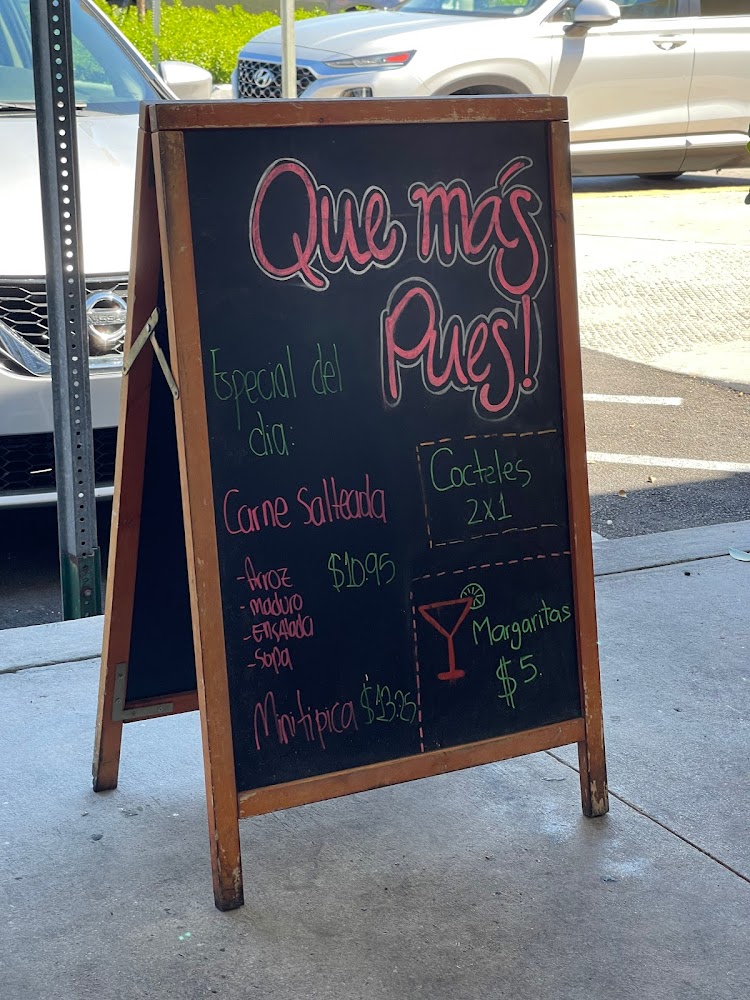 Que más
Pues!
Especial del
dia:
Carne Salteada
-Arroz $10.95
-maduro
-Ensalada
-Sopa
Minitipica $13.25
Cocteles
2x1
Margaritas
$5.
NISSAN